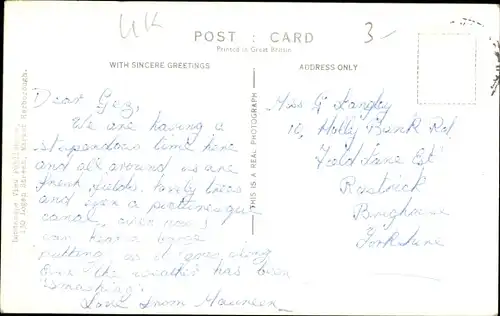 UK
3-
POST : CARD
Printed in Great Britain
WITH SINCERE GREETINGS
ADDRESS ONLY
THIS IS A REAL PHOTOGRAPH
130 Logan Street, Market Harborough.
Dear Gez,
We are having a
stupendous time here
and all around us are
fresh fields, lovely trees
and even a picturesque
canal, even now I
can hear a barge
putting as it goes along
The weather has been
"smashing".
Love from Maureen
Miss G Langley
10, Holly Bank Rd
Field Lane Est
Rastrick
Brighouse
Yorkshire